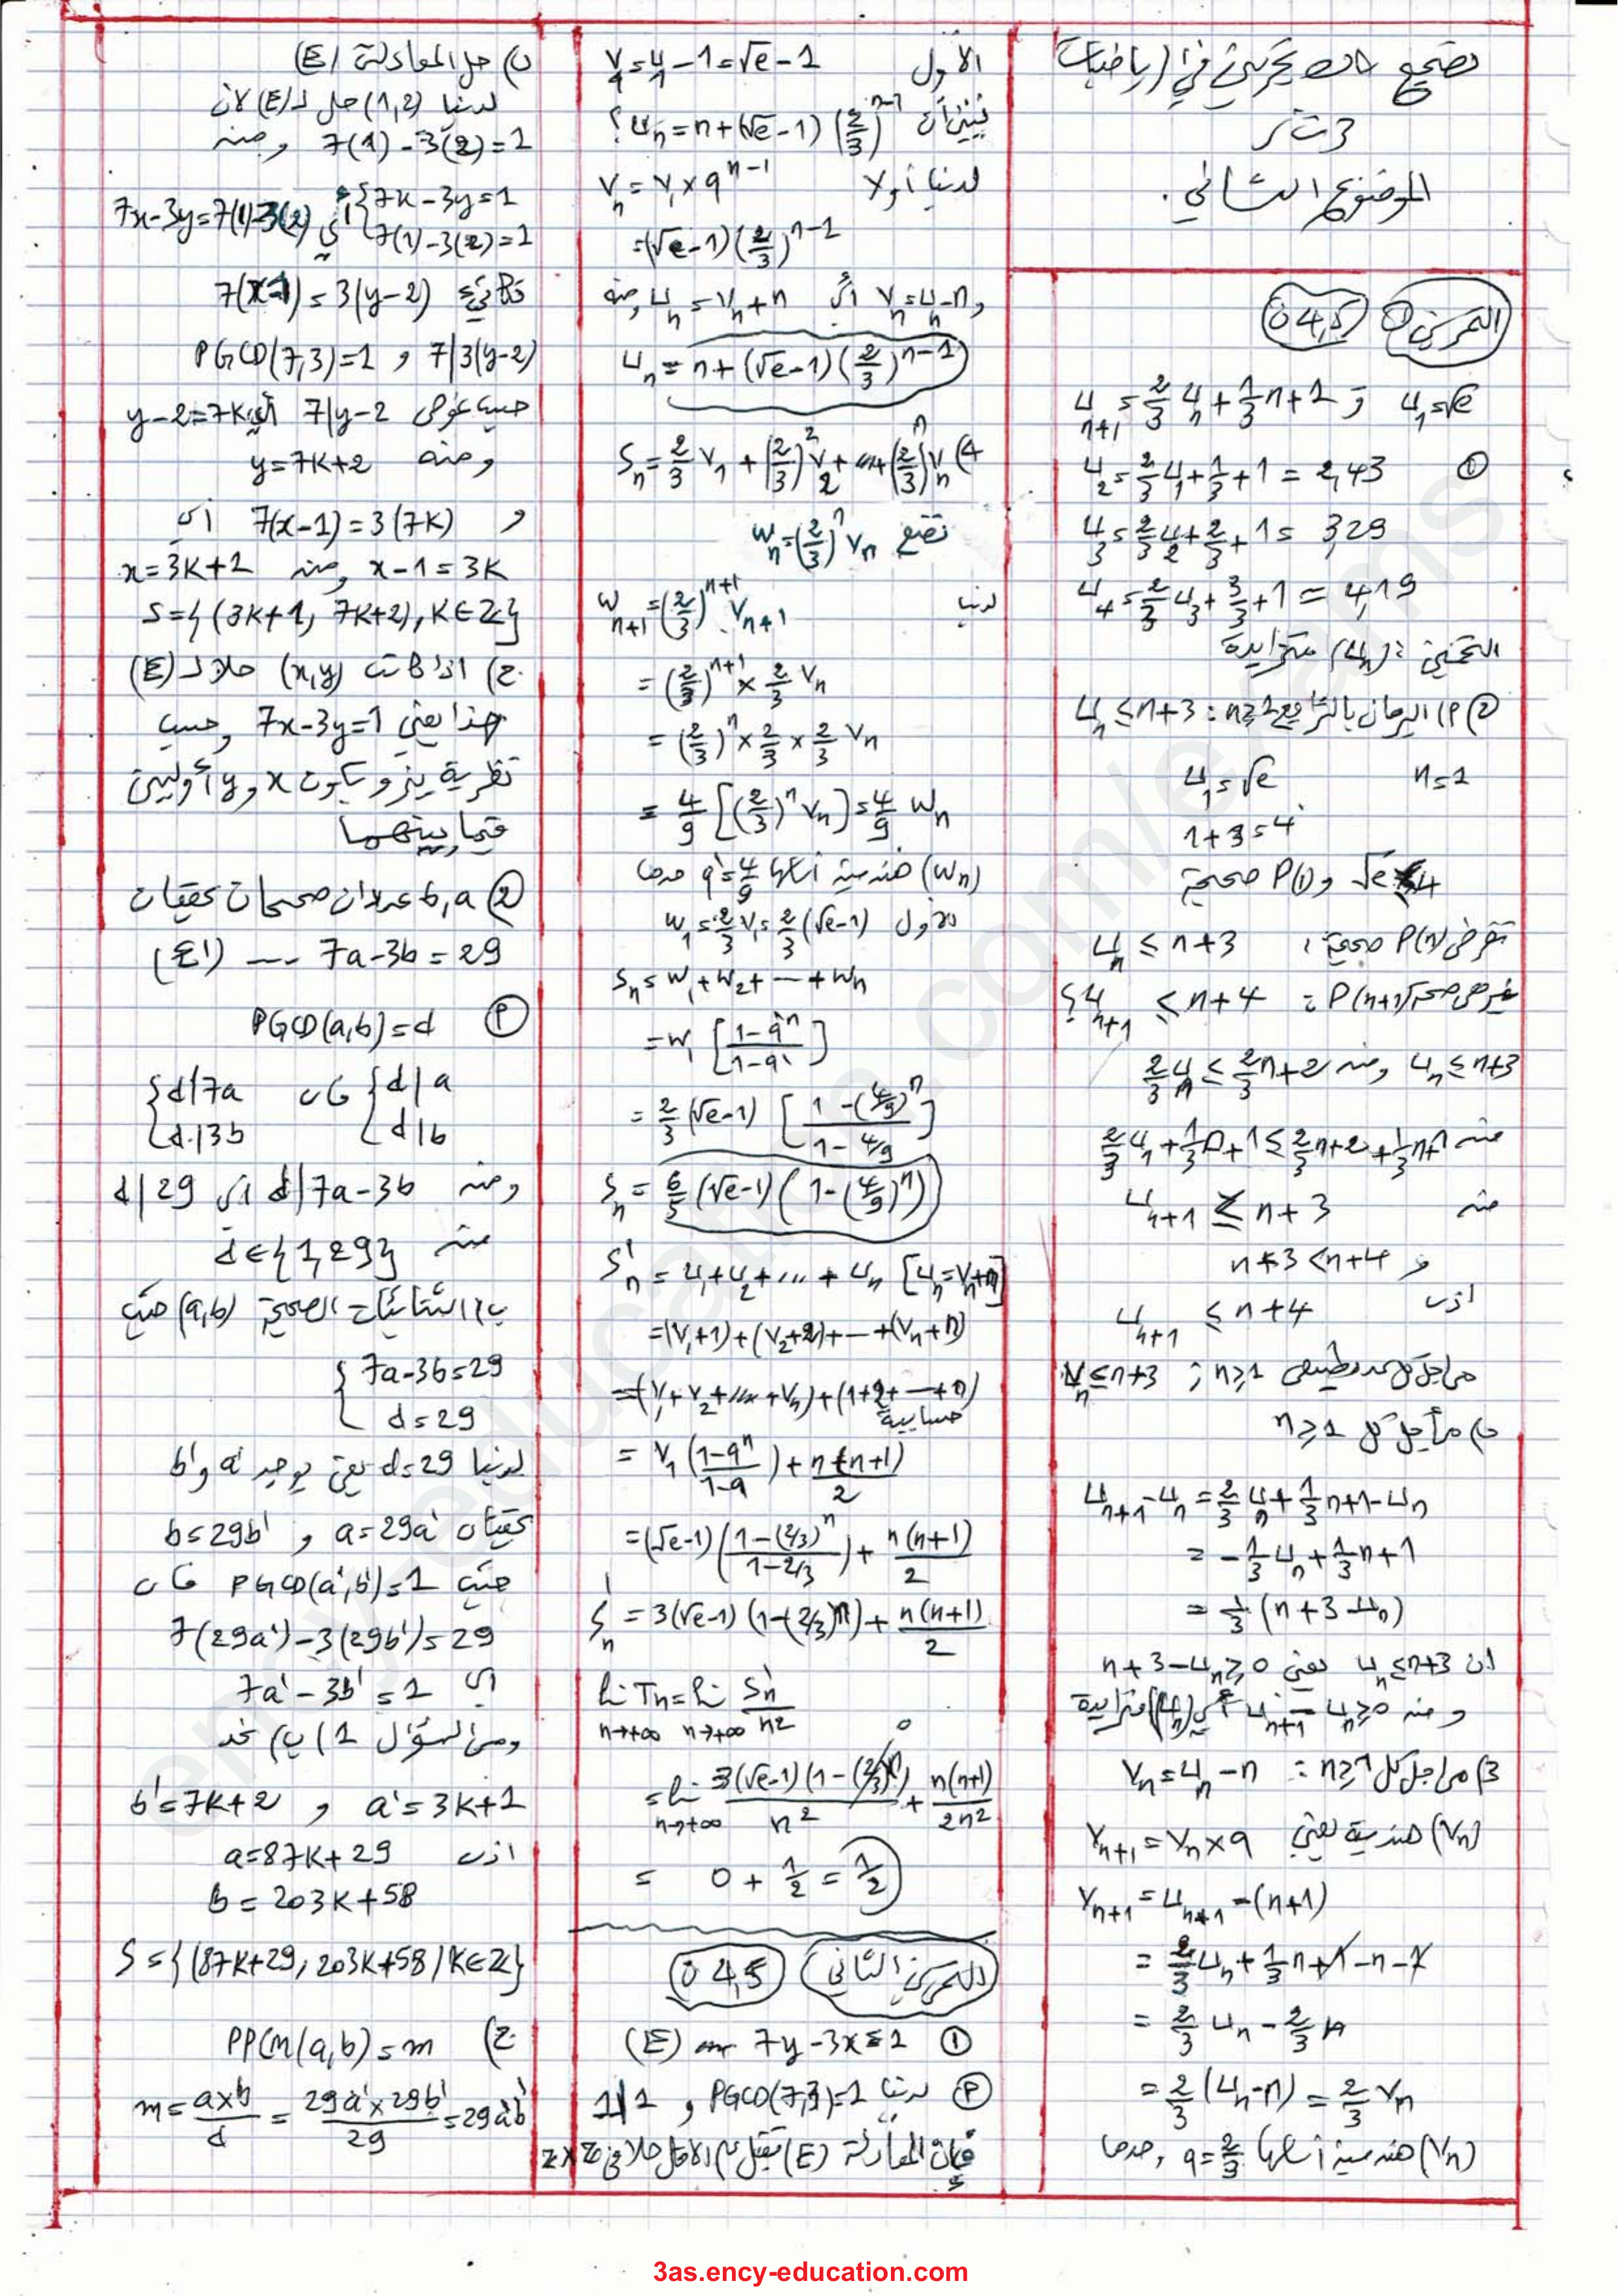 تصحيح البكالوريا التجريبي في الرياضيات
3 ت ر
الموضوع الثاني.
التمرين ① 04,5
u_{n+1} = 2/3 u_n + 1/3 n + 1 و u_1 = √e
① u_2 = 2/3 u_1 + 1/3 + 1 = 2,43
u_3 = 2/3 u_2 + 2/3 + 1 = 3,29
u_4 = 2/3 u_3 + 3/3 + 1 = 4,19
التخمين: (u_n) متزايدة
② أ) البرهان بالتراجع n≥1 : u_n ≤ n+3
n=1 u_1 = √e
1+3=4
√e ≤ 4 و P(1) صحيحة
نفرض P(n) صحيحة: u_n ≤ n+3
P(n+1) : u_{n+1} ≤ n+4 ؟
u_n ≤ n+3 ومنه 2/3 u_n ≤ 2/3 n + 2
منه 2/3 u_n + 1/3 n + 1 ≤ 2/3 n + 2 + 1/3 n + 1
منه u_{n+1} ≤ n+3
و n+3 < n+4
اذن u_{n+1} ≤ n+4
من اجل كل عدد طبيعي n≥1 ; u_n ≤ n+3
ب) من أجل كل n≥1
u_{n+1} - u_n = 2/3 u_n + 1/3 n + 1 - u_n
= -1/3 u_n + 1/3 n + 1
= 1/3 (n+3-u_n)
ان u_n ≤ n+3 يعني n+3-u_n ≥ 0
ومنه u_{n+1} - u_n ≥ 0 أي (u_n) متزايدة
3) من اجل كل n≥1 : v_n = u_n - n
(v_n) هندسية يعني v_{n+1} = v_n × q
v_{n+1} = u_{n+1} - (n+1)
= 2/3 u_n + 1/3 n + 1 - n - 1
= 2/3 u_n - 2/3 n
= 2/3 (u_n - n) = 2/3 v_n
(v_n) هندسية أساسها q = 2/3 , حدها
الاول v_1 = u_1 - 1 = √e - 1
نبين أن u_n = n + (√e - 1) (2/3)^{n-1} ؟
لدينا أولا v_n = v_1 × q^{n-1}
= (√e - 1) (2/3)^{n-1}
و v_n = u_n - n أي u_n = v_n + n ومنه
u_n = n + (√e - 1) (2/3)^{n-1}
4) S_n = 2/3 v_1 + (2/3)^2 v_2 + ... + (2/3)^n v_n
نضع w_n = (2/3)^n v_n
لدينا w_{n+1} = (2/3)^{n+1} . v_{n+1}
= (2/3)^{n+1} × 2/3 v_n
= (2/3)^n × 2/3 × 2/3 v_n
= 4/9 [(2/3)^n v_n] = 4/9 w_n
(w_n) هندسية أساسها q' = 4/9 حدها
الاول w_1 = 2/3 v_1 = 2/3 (√e - 1)
S_n = w_1 + w_2 + ... + w_n
= w_1 [(1 - q'^n)/(1 - q')]
= 2/3 (√e - 1) [(1 - (4/9)^n)/(1 - 4/9)]
S_n = 6/5 (√e - 1) (1 - (4/9)^n)
S'_n = u_1 + u_2 + ... + u_n [u_n = v_n + n]
= (v_1 + 1) + (v_2 + 2) + ... + (v_n + n)
= (v_1 + v_2 + ... + v_n) + (1 + 2 + ... + n)
حسابية
= v_1 ((1 - q^n)/(1 - q)) + n(n+1)/2
= (√e - 1) ((1 - (2/3)^n)/(1 - 2/3)) + n(n+1)/2
S'_n = 3(√e - 1) (1 - (2/3)^n) + n(n+1)/2
lim T_n = lim S'_n/n²
n→+∞ n→+∞
= lim 3(√e - 1) (1 - (2/3)^n)/n² + n(n+1)/2n²
n→+∞
= 0 + 1/2 = 1/2
التمرين الثاني 04,5
① 7y - 3x = 1 ... (E)
أ) لدينا PGCD(7,3) = 1 و 1|1
فإن المعادلة (E) تقبل على الاقل حلا في Z×Z
ب) حل المعادلة (E)
لدينا (1,2) حل لـ (E) لان
7(1) - 3(2) = 1 ومنه
{7x - 3y = 1
{7(1) - 3(2) = 1 أي 7x - 3y = 7(1) - 3(2)
تكافئ 7(x-1) = 3(y-2)
7|3(y-2) و PGCD(7,3) = 1
حسب غوص 7|y-2 أي y-2 = 7k
ومنه y = 7k+2
و 7(x-1) = 3(7k) أي
x-1 = 3k ومنه x = 3k+1
S = {(3k+1, 7k+2), k∈Z}
ج) اذا كانت (x,y) حلا لـ (E)
هذا يعني 7x - 3y = 1 وحسب
نظرية بيزو يكون x و y أوليين
فيما بينهما
② a, b عددان صحيحان يحققان
7a - 3b = 29 ... (E')
أ) PGCD(a,b) = d
{d|a فان {d|7a
{d|b {d|3b
ومنه d|7a-3b اي d|29
منه d∈{1,29}
ب) الثنائيات الصحيحة (a,b) حيث
{7a - 3b = 29
{d = 29
لدينا d = 29 يعني يوجد a' و b'
يحققان a = 29a' و b = 29b'
حيث PGCD(a',b') = 1 فان
7(29a') - 3(29b') = 29
اي 7a' - 3b' = 1
ومن السؤال 1) ب) نجد
a' = 3k+1 و b' = 7k+2
اذن a = 87k+29
b = 203k+58
S = {(87k+29, 203k+58)/k∈Z}
ج) PPCM(a,b) = m
m = a×b/d = 29a'×29b'/29 = 29a'b'
ency-education.com/exams
3as.ency-education.com